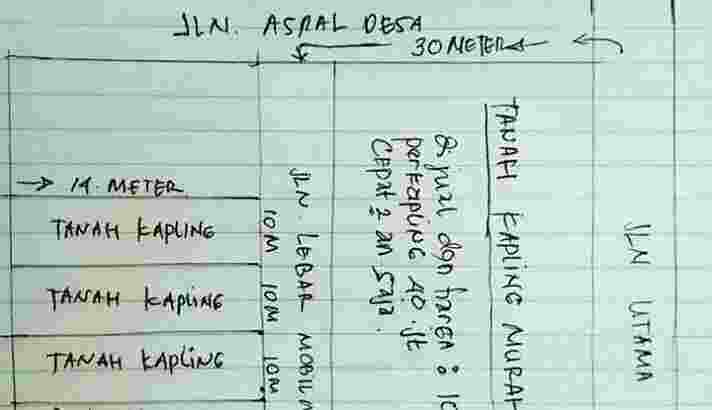 JLN. ASPAL DESA
30 METER
14. METER
TANAH KAPLING
10M
TANAH KAPLING
10M
TANAH KAPLING
10M
JLN. LEBAR MOBIL
Di jual dgn harga : 10
perkapling 40. Jt
Cepat 2 an saja.
TANAH KAPLING MURAH
JLN UTAMA